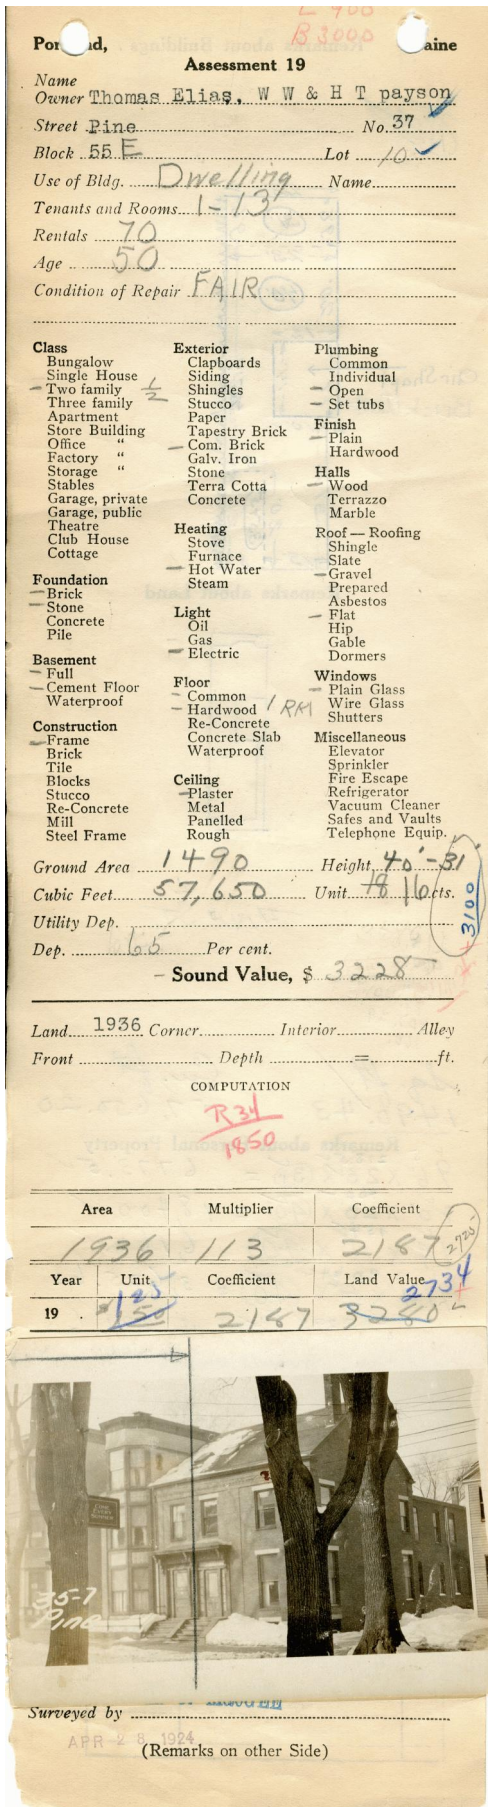 L 900
B 3000
Assessment 19
Name
Owner Thomas Elias, W W & H T payson
Street Pine No. 37
Block 55 E Lot 10
Use of Bldg. Dwelling Name
Tenants and Rooms 1-13
Rentals 70
Age 50
Condition of Repair FAIR
Class
Bungalow
Single House
Two family 1/2
Three family
Apartment
Store Building
Office "
Factory "
Storage "
Stables
Garage, private
Garage, public
Theatre
Club House
Cottage
Foundation
Brick
Stone
Concrete
Pile
Basement
Full
Cement Floor
Waterproof
Construction
Frame
Brick
Tile
Blocks
Stucco
Re-Concrete
Mill
Steel Frame
Exterior
Clapboards
Siding
Shingles
Stucco
Paper
Tapestry Brick
Com. Brick
Galv. Iron
Stone
Terra Cotta
Concrete
Heating
Stove
Furnace
Hot Water
Steam
Light
Oil
Gas
Electric
Floor
Common
Hardwood 1 RM
Re-Concrete
Concrete Slab
Waterproof
Ceiling
Plaster
Metal
Panelled
Rough
Plumbing
Common
Individual
Open
Set tubs
Finish
Plain
Hardwood
Halls
Wood
Terrazzo
Marble
Roof — Roofing
Shingle
Slate
Gravel
Prepared
Asbestos
Flat
Hip
Gable
Dormers
Windows
Plain Glass
Wire Glass
Shutters
Miscellaneous
Elevator
Sprinkler
Fire Escape
Refrigerator
Vacuum Cleaner
Safes and Vaults
Telephone Equip.
Ground Area 1490 Height, 40'-31
Cubic Feet 57,650 Unit 18 16 cts.
3100
Utility Dep.
Dep. 65 Per cent.
Sound Value, $ 3228
Land 1936 Corner Interior Alley
Front Depth = ft.
COMPUTATION
R34
1850
Area Multiplier Coefficient
1936 113 2187 2725
Year Unit Coefficient Land Value
2734
19 . $1.50 1.25 2187 3280
35-7
Pine
Surveyed by
APR 28 1924
(Remarks on other Side)